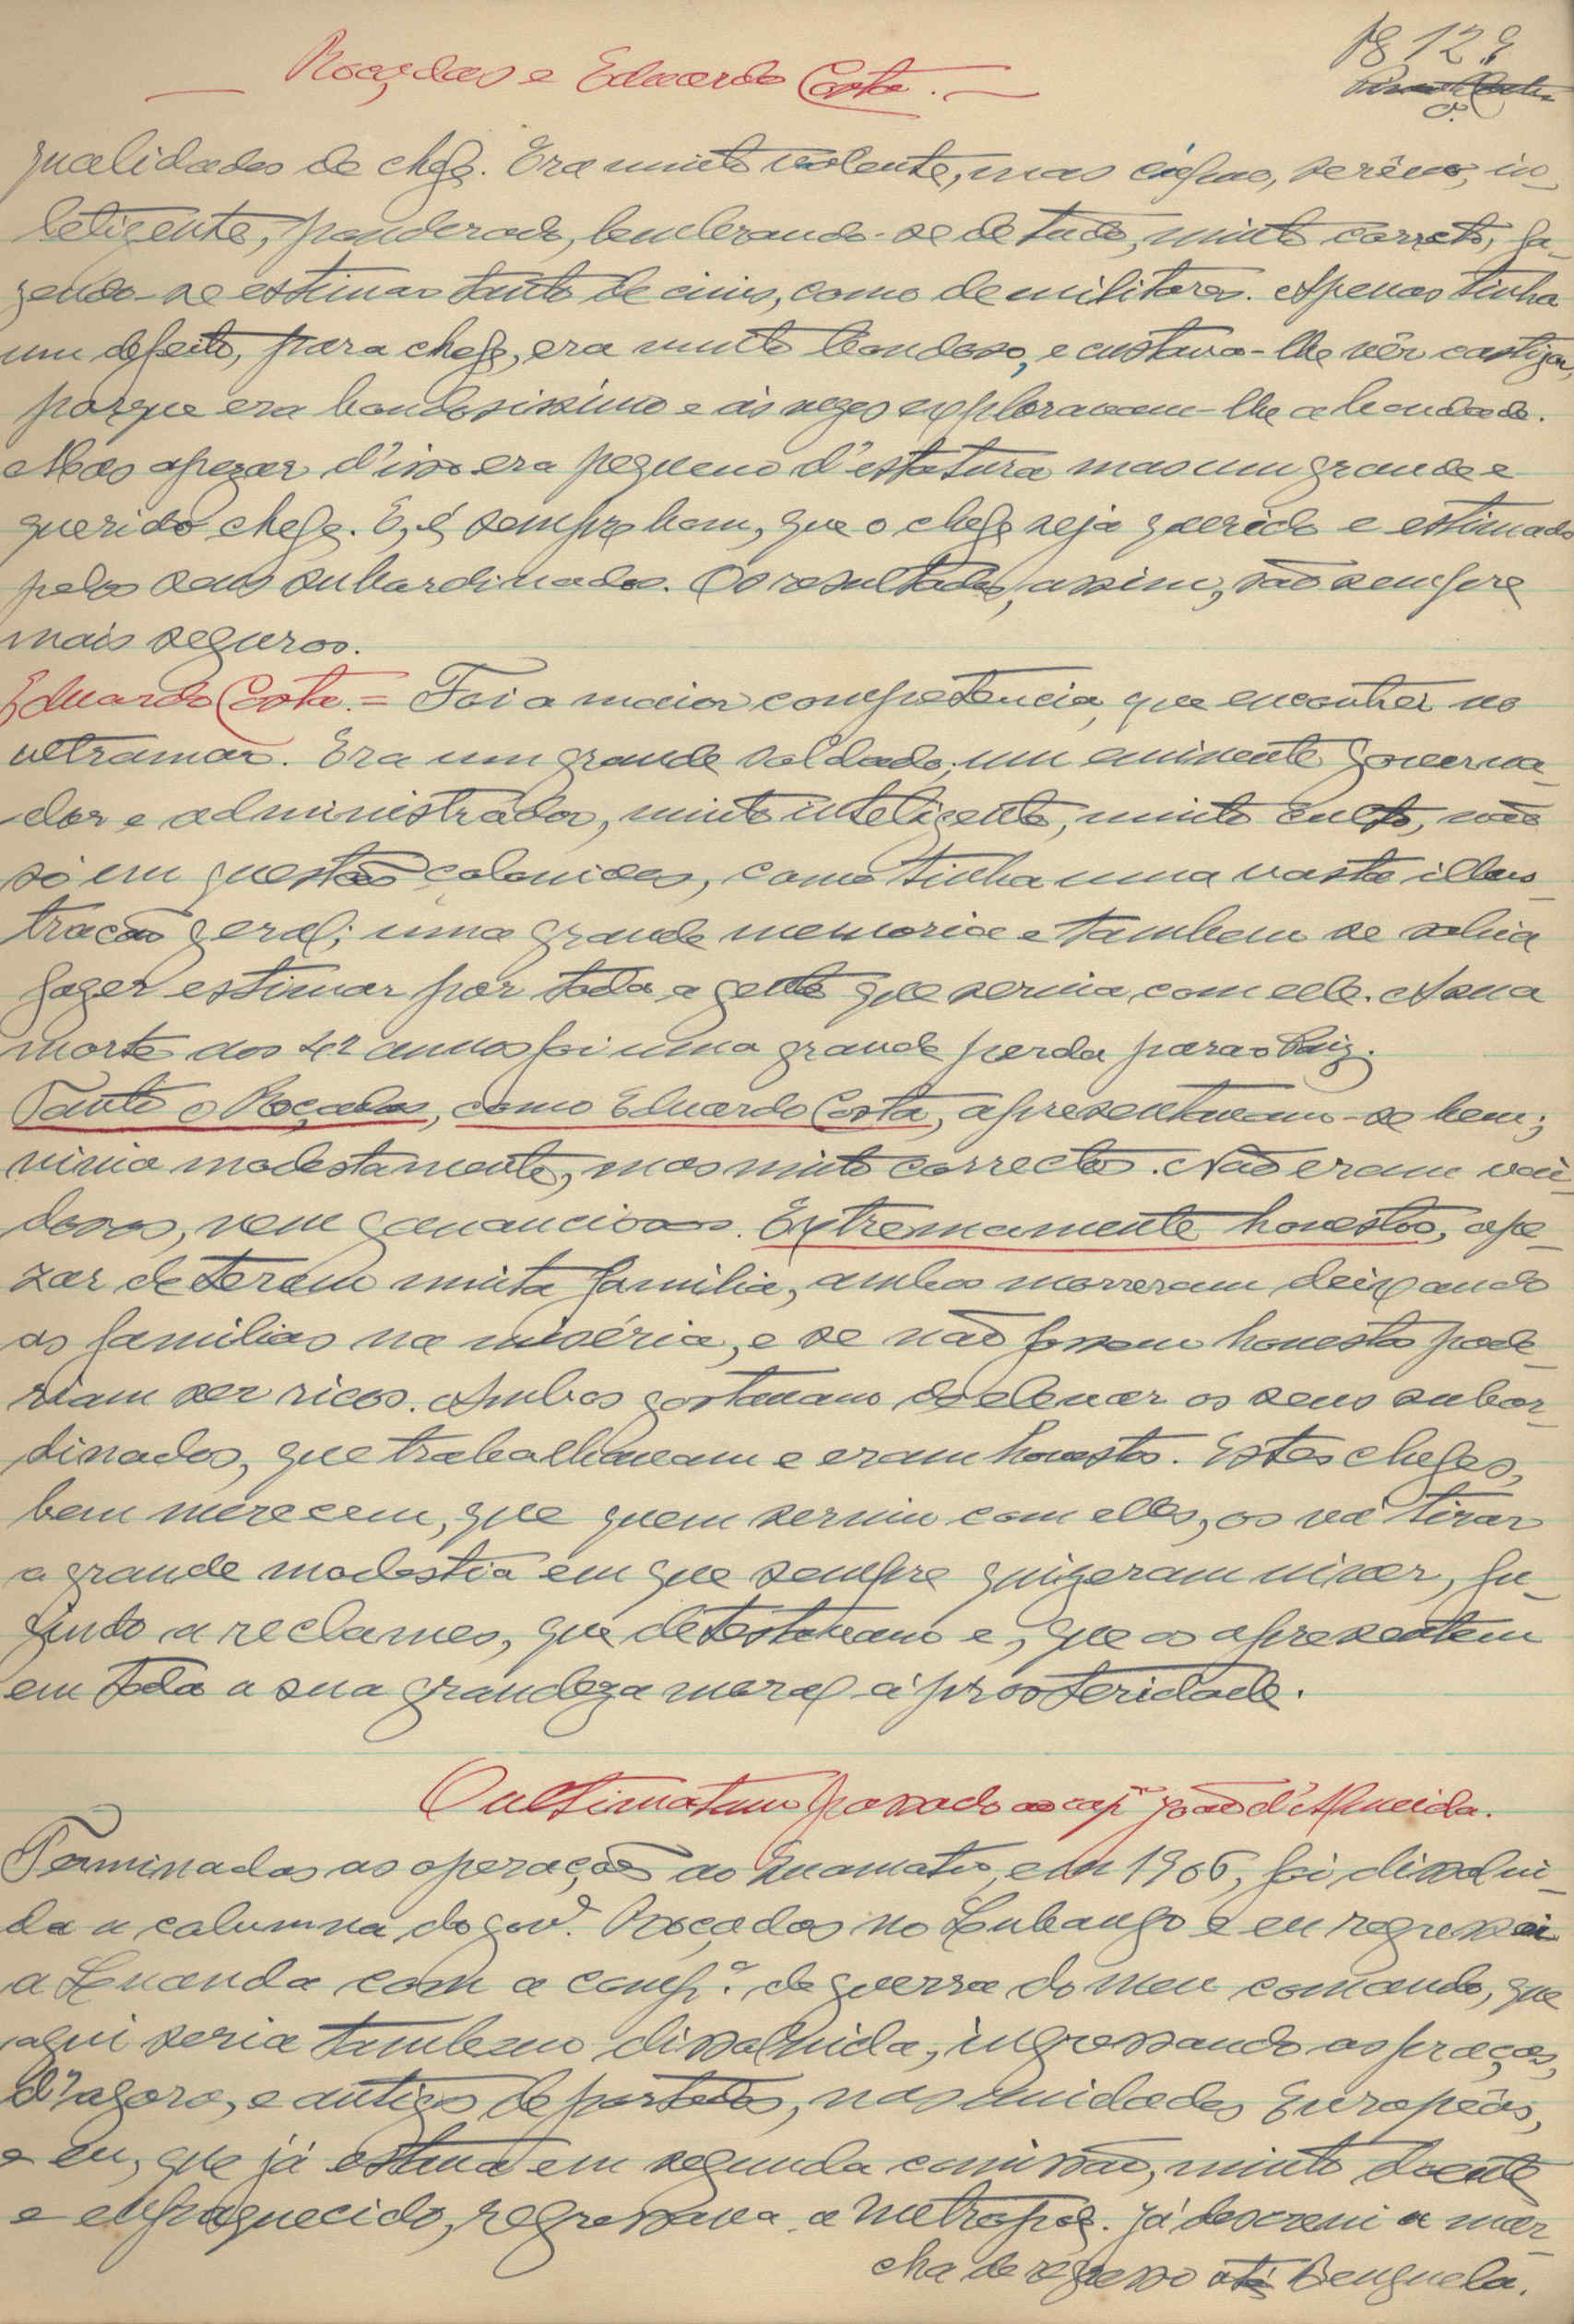 Roçadas e Eduardo Costa.
qualidades de chefe. Era muito valente, mas calmo, serêno, in-
teligente, ponderado, lembrando-se de tudo, muito correcto, fa-
zendo-se estimar tanto de civis, como de militares. Apenas tinha
um defeito, para chefe, era muito bondoso, e custava-lhe vêr castigar,
porque era bondosissimo e ás vezes exploravam-lhe a bondade.
Mas apezar d'isso era pequeno d'estatura mas um grande e
querido chefe. E, é sempre bom, que o chefe seja querido e estimado
pelos seus subordinados. Os resultados, assim, são sempre
mais seguros.
Eduardo Costa = Foi a maior competencia, que encontrei no
ultramar. Era um grande soldado, um eminente governa-
dor e administrador, muito inteligente, muito culto, não
só em questões coloniaes, como tinha uma vasta illus-
tração geral; uma grande memoria e tambem se sabia
fazer estimar por toda a gente que servia com elle. A sua
morte aos 42 annos foi uma grande perda para o Paiz.
Tanto o Roçadas, como Eduardo Costa, apresentavam-se bem;
vivia modestamente, mas muito correctos. Não eram vai-
dosos, nem gananciosos. Extremamente honestos, ape-
zar de terem muita familia, ambos morreram deixando
as familias na miséria, e se não fossem honestos pode-
riam ser ricos. Ambos gostavam de elevar os seus subor-
dinados, que trabalhavam e eram honestos. Estes chefes,
bem merecem, que quem serviu com elles, os vá tirar
a grande modestia em que sempre quizeram viver, fu-
gindo a reclames, que detestavam e, que os apresentem
em toda a sua grandeza moral á prosteridade.
O ultimatum passado ao cap.m João d'Almeida.
Terminadas as operações ao Cuamato, em 1906, foi dissolvi-
da a columna do gov.r Roçadas no Lubango e eu regressei
a Luanda com a comp.ª de guerra do meu comando, que
aqui seria tambem dissolvida, ingressando as praças,
d'agora, e antigos deportados, nas unidades Europêas,
e eu, que já estava em segunda comissão, muito doente
e enfraquecido, regressava a metropole. Já descrevi a mar-
cha de regresso até Benguela.